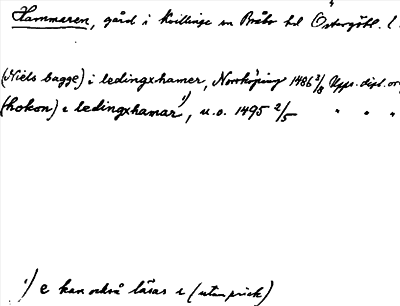 Hammaren, gård i Kvillinge sn Bråbo hd Östergötl. l
(Niels bagge) i ledingxhamer, Norrköping 1486 3/8 Upps. dipl. or
(hokon) i ledingxhamar 1), u.o. 1495 2/5 " " "
1) e kan också läsas i (utan prick)